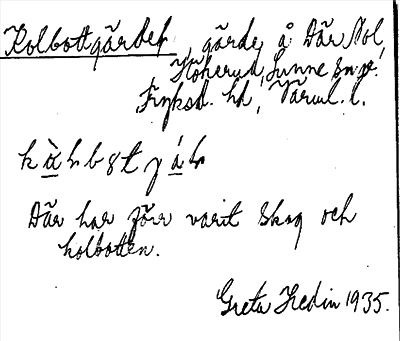 Kolbottgärdet gärde å Där Nol,
Högerud, Sunne sn
Fryksd. hd, Värml. l.
Där har förr varit skog och
kolbotten.
Greta Hedin 1935.